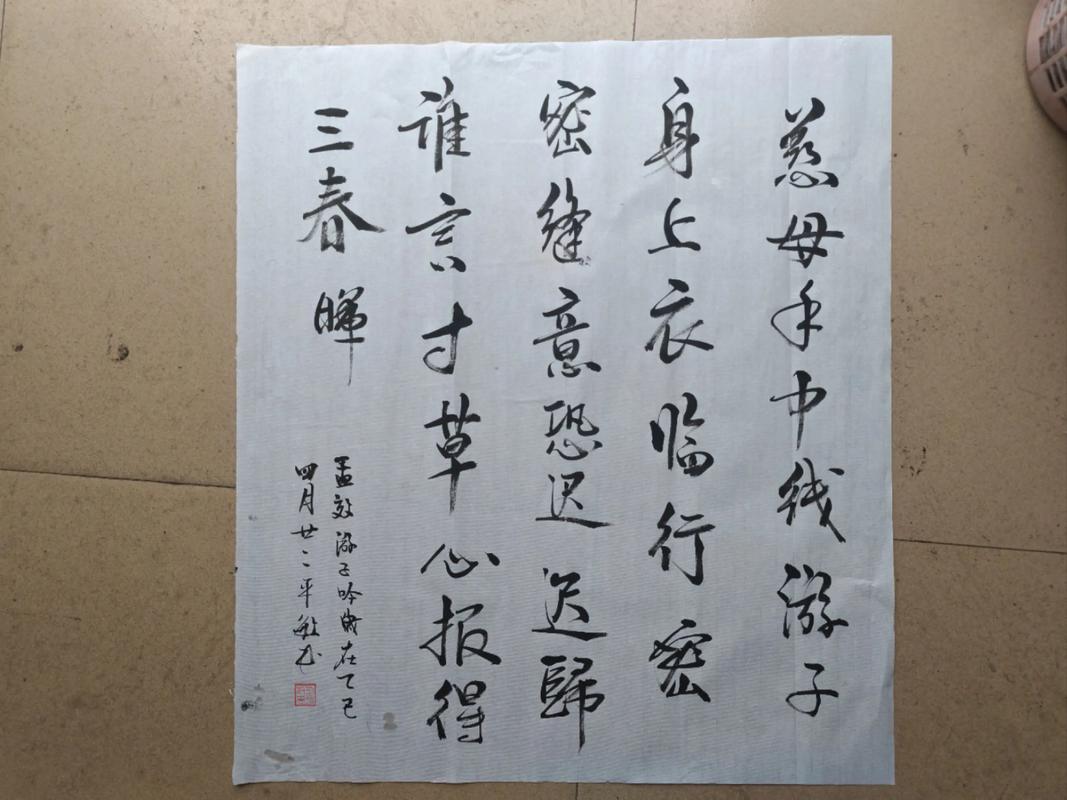 慈母手中线游子
身上衣临行密
密缝意恐迟迟歸
谁言寸草心报得
三春晖
孟效游子吟歲在乙巳
四月廿二平敏书